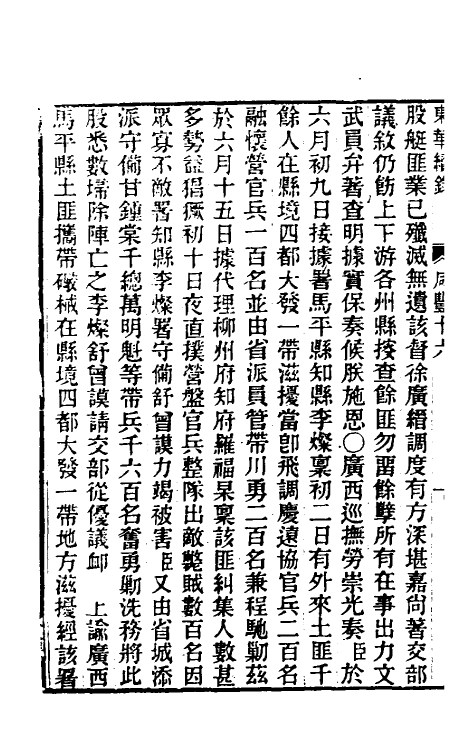 東華續錄 咸豐十六 一
股艇匪業已殲滅無遺該督徐廣縉調度有方深堪嘉尚著交部
議敘仍飭上下游各州縣按查餘匪勿留餘孽所有在事出力文
武員弁著查明據實保奏候朕施恩〇廣西巡撫勞崇光奏臣於
六月初九日接據署馬平縣知縣李燦稟初二日有外來土匪千
餘人在縣境四都大發一帶滋擾當卽飛調慶遠協官兵二百名
融懷營官兵一百名並由省派員管帶川勇二百名兼程馳勦茲
於六月十五日據代理柳州府知府羅福杲稟該匪糾集人數甚
多勢益猖獗初十日夜直撲營盤官兵整隊出敵斃賊數百名因
眾寡不敵署知縣李燦署守備舒曾謨力竭被害臣又由省城添
派守備甘鍾棠千總萬明魁等帶兵千六百名奮勇勦洗務將此
股悉數埽除陣亡之李燦舒曾謨請交部從優議卹 上諭廣西
馬平縣土匪攜帶礮械在縣境四都大發一帶地方滋擾經該署